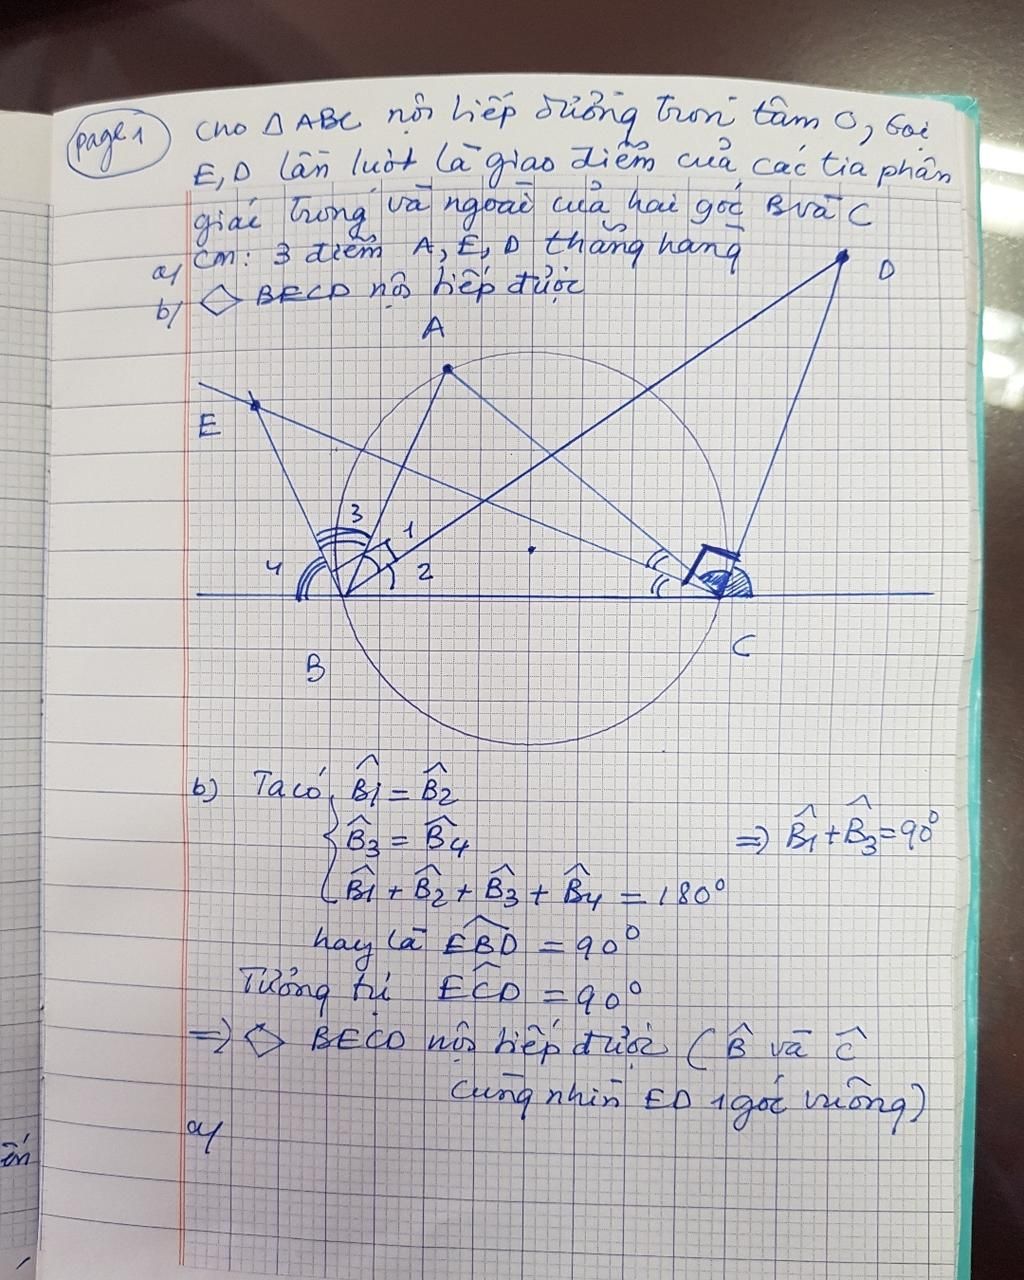 page 1
Cho Δ ABC nội tiếp đường tròn tâm O, Gọi
E, D lần lượt là giao điểm của các tia phân
giác trong và ngoài của hai góc B và C
a/ Cm: 3 điểm A, E, D thẳng hàng
b/ ◇ BECD nội tiếp được
A
D
E
3
1
4
2
B
C
b) Ta có B̂1 = B̂2
B̂3 = B̂4 => B̂1 + B̂3 = 90°
B̂1 + B̂2 + B̂3 + B̂4 = 180°
hay là EB̂D = 90°
Tương tự EĈD = 90°
=> ◇ BECD nội tiếp được (B̂ và Ĉ
cùng nhìn ED 1 góc vuông)
a/